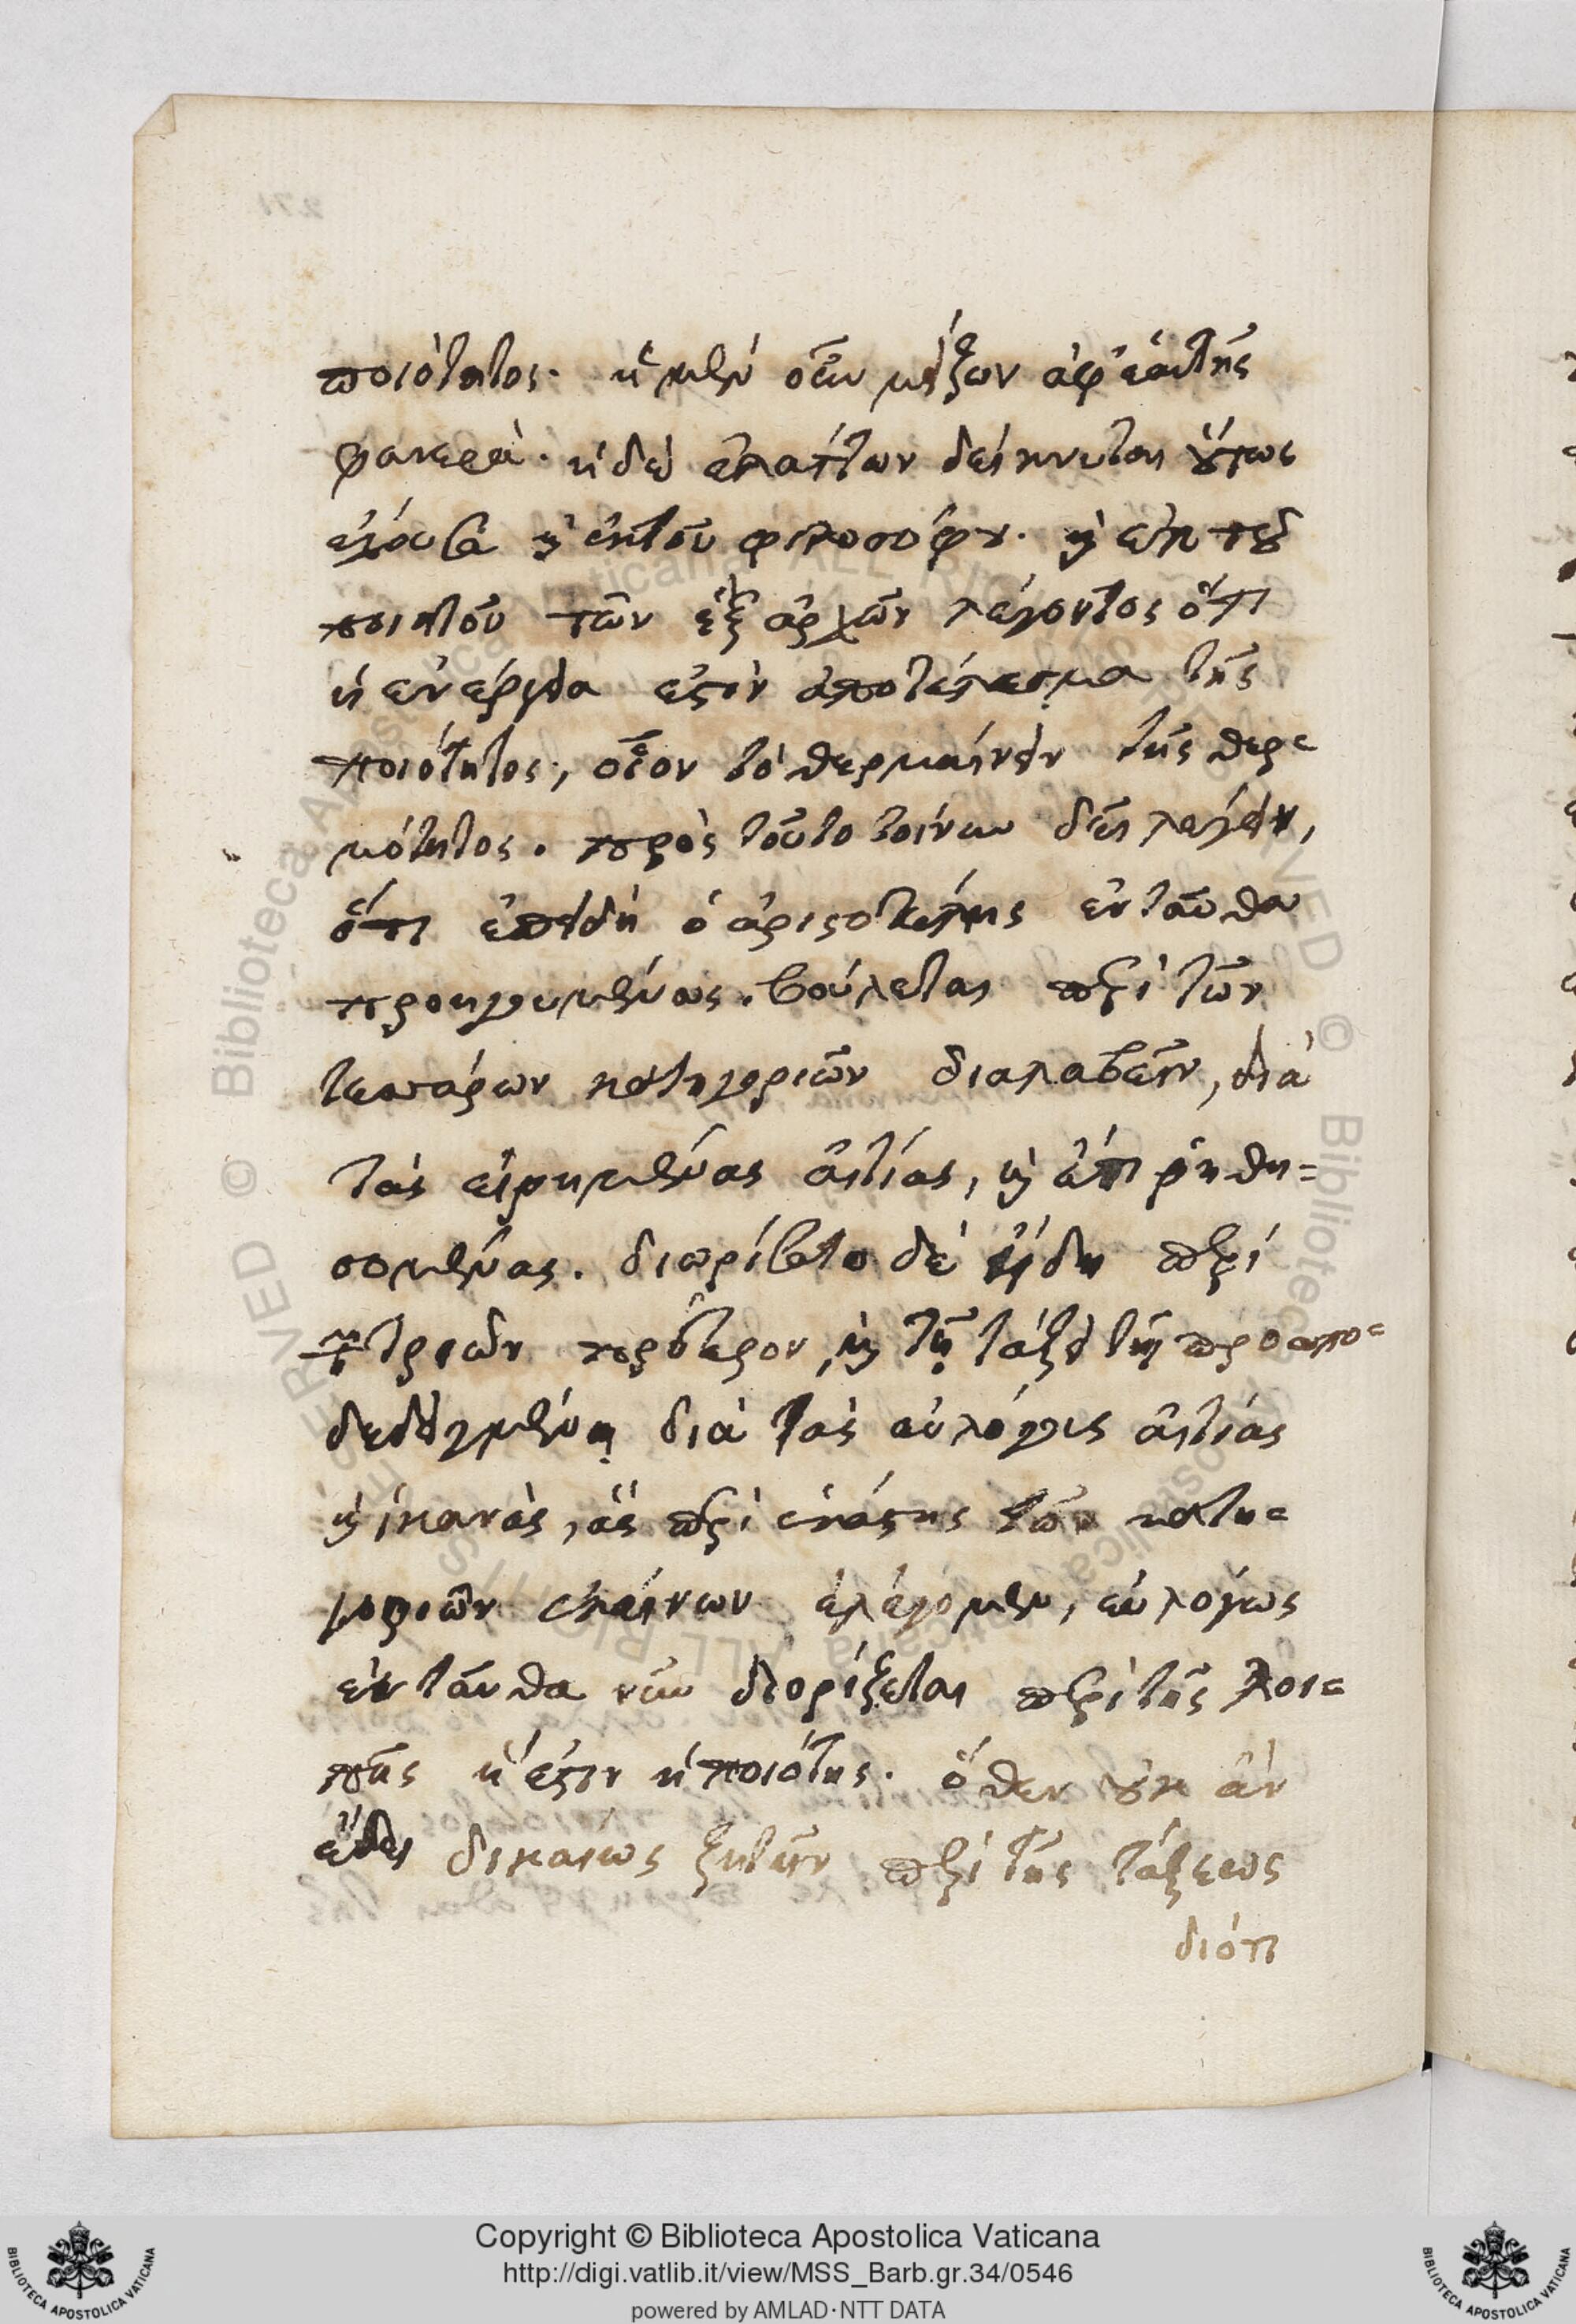 ποιότητος. ἡ μὲν οὖν μείζων ἀφ' ἑαυτῆς
φανερὰ. ἡ δὲ ἐλάττων δείκνυται οὕτως
ἔχουσα καὶ ἐκ τοῦ φιλοσόφου. καὶ ἐκ τοῦ
ποιητοῦ τῶν ἓξ ἀρχῶν λέγοντος ὅτι
ἡ ἐνέργεια ἐστὶν ἀποτέλεσμα τῆς
ποιότητος, οἷον τὸ θερμαίνειν τῆς θερ=
μότητος. πρὸς τοῦτο τοίνυν δεῖ λέγειν,
ὅτι ἐπειδὴ ὁ ἀριστοτέλης ἐνταῦθα
προηγουμένως βούλεται περὶ τῶν
τεσσάρων κατηγοριῶν διαλαβεῖν, διὰ
τὰς εἰρημένας αἰτίας, καὶ ἔτι ῥηθη=
σομένας. διωρίσατο δὲ ἤδη περὶ
τῶν τριῶν πρότερον, καὶ τῇ τάξει τῇ προαπο=
δεδειγμένῃ διὰ τὰς εὐλόγους αἰτίας
καὶ ἱκανὰς, ἃς περὶ ἑκάστης τῶν κατη=
γοριῶν ἐκείνων ἐλέγομεν, εὐλόγως
ἐνταῦθα νῦν διορίζεται περὶ τῆς λοι=
πῆς ἥ ἐστιν ἡ ποιότης. ὅθεν οὐκ ἂν
ἔδει δικαίως ζητεῖν περὶ τῆς τάξεως
διότι
Copyright © Biblioteca Apostolica Vaticana
http://digi.vatlib.it/view/MSS_Barb.gr.34/0546
powered by AMLAD·NTT DATA